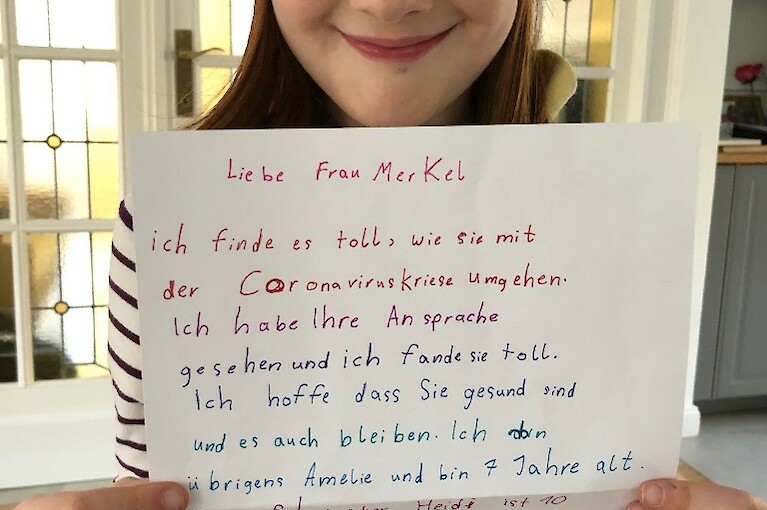 Liebe Frau Merkel
ich finde es toll, wie sie mit
der Coronaviruskriese umgehen.
Ich habe Ihre Ansprache
gesehen und ich fande sie toll.
Ich hoffe dass Sie gesund sind
und es auch bleiben. Ich bin
übrigens Amelie und bin 7 Jahre alt.
Heidi ist 10